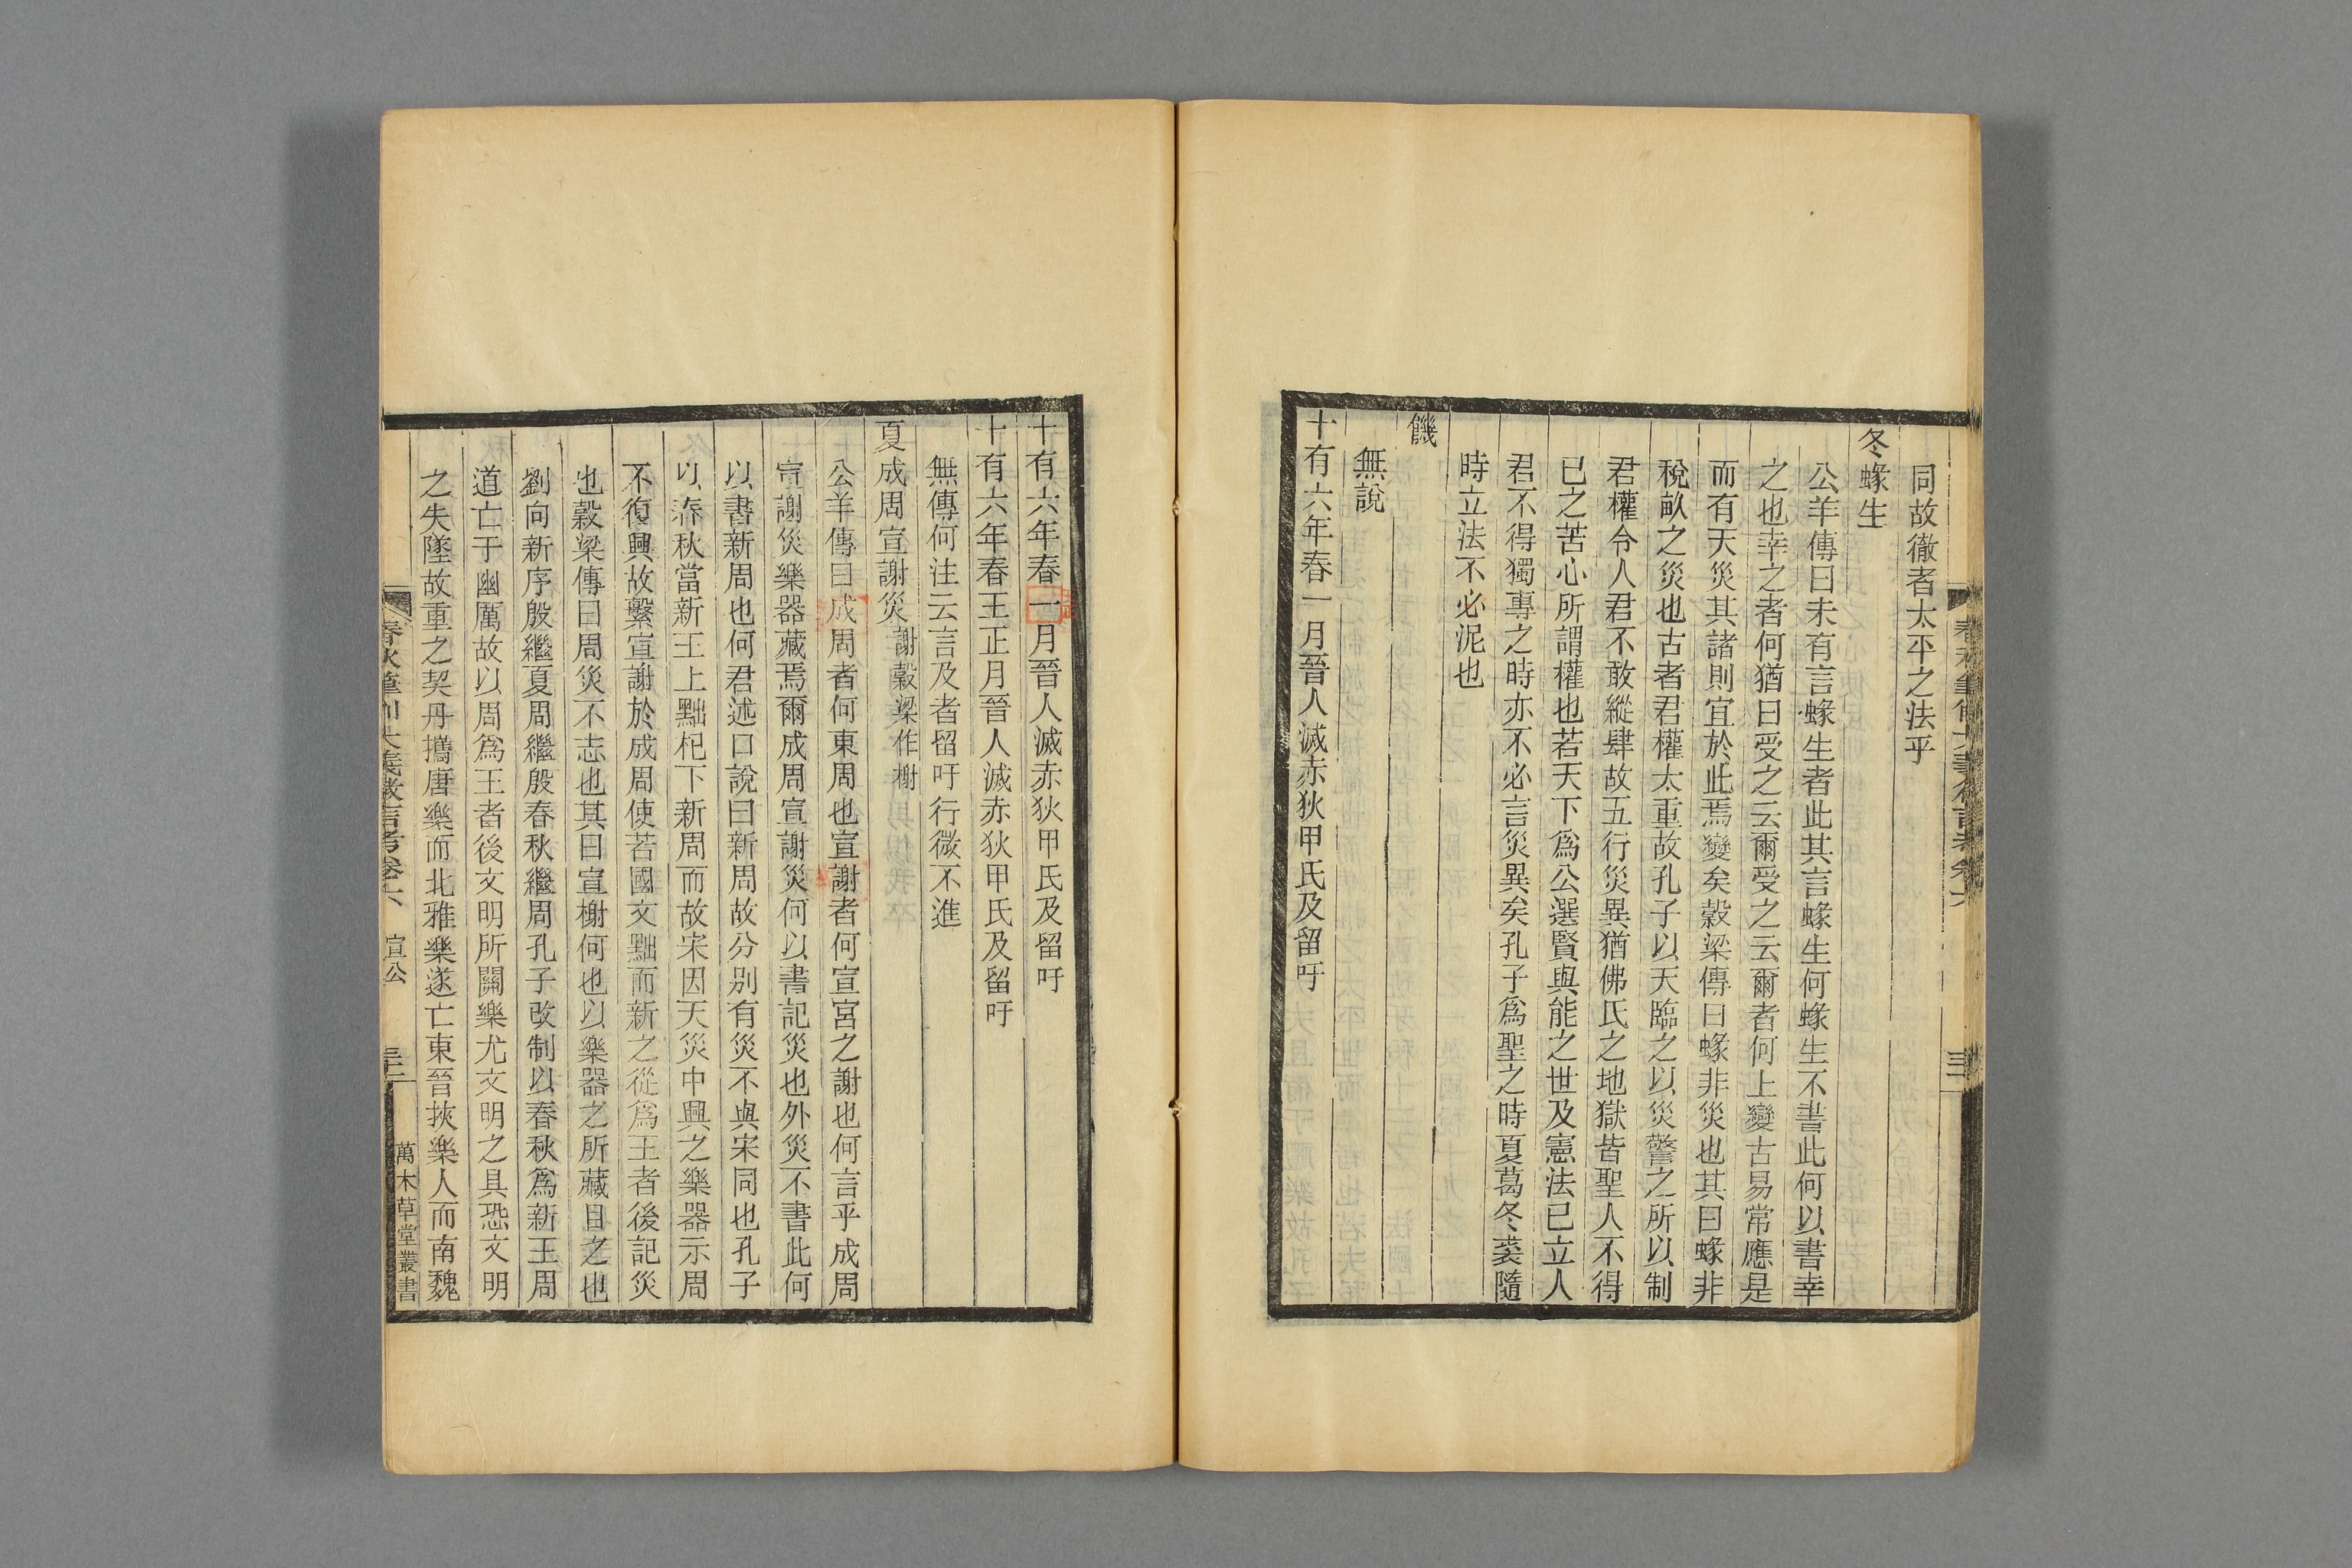 同故徹者太平之法乎
冬蝝生
公羊傳曰未有言蝝生者此其言蝝生何蝝生不書此何以書幸
之也幸之者何猶曰受之云爾受之云爾者何上變古易常應是
而有天災其諸則宜於此焉變矣穀梁傳曰蝝非災也其曰蝝非
稅畝之災也古者君權太重故孔子以天臨之以災警之所以制
君權令人君不敢縱肆故五行災異猶佛氏之地獄皆聖人不得
已之苦心所謂權也若天下爲公選賢與能之世及憲法已立人
君不得獨專之時亦不必言災異矣孔子爲聖之時夏葛冬裘隨
時立法不必泥也
饑
無說
十有六年春一月晉人滅赤狄甲氏及留吁
十有六年春一月晉人滅赤狄甲氏及留吁
十有六年春王正月晉人滅赤狄甲氏及留吁
無傳何注云言及者留吁行微不進
夏成周宣謝災謝穀梁作榭
公羊傳曰成周者何東周也宣謝者何宣宮之謝也何言乎成周
宣謝災樂器藏焉爾成周宣謝災何以書記災也外災不書此何
以書新周也何君述口說曰新周故分別有災不與宋同也孔子
以春秋當新王上黜杞下新周而故宋因天災中興之樂器示周
不復興故繫宣謝於成周使若國文黜而新之從爲王者後記災
也穀梁傳曰周災不志也其曰宣榭何也以樂器之所藏目之也
劉向新序殷繼夏周繼殷春秋繼周孔子改制以春秋爲新王周
道亡于幽厲故以周爲王者後文明所關樂尤文明之具恐文明
之失墜故重之契丹攜唐樂而北雅樂遂亡東晉挾樂人而南魏
春秋筆削大義微言考卷六 宣公
萬木草堂叢書